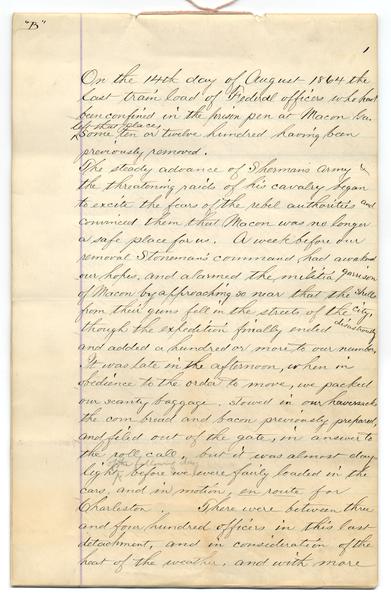 "B"
1
On the 14th day of August 1864 the
last train load of Federal officers who had
been confined in the prison pen at Macon Ga.
left that place,
Some ten or twelve hundred having been
previously removed.
The steady advance of Sherman's army &
the threatening raids of his cavalry began
to excite the fears of the rebel authorities and
convinced them that Macon was no longer
a safe place for us. A week before our
removal Stoneman's command had awakened
our hopes, and alarmed the militia garrison
of Macon by approaching so near that the shells
from their guns fell in the streets of the city,
though the expedition finally ended disastrously
and added a hundred or more to our number.
It was late in the afternoon, when in
obedience to the order to move, we packed
our scanty baggage. stowed in our haversacks
the corn bread and bacon previously prepared,
and filed out of the gate, in answer to
the roll call, but it was almost day
following day
light before we were fairly loaded in the
cars, and in motion, en route for
Charleston. There were between three
and four hundred officers in this last
detachment, and in consideration of the
heat of the weather, and with more